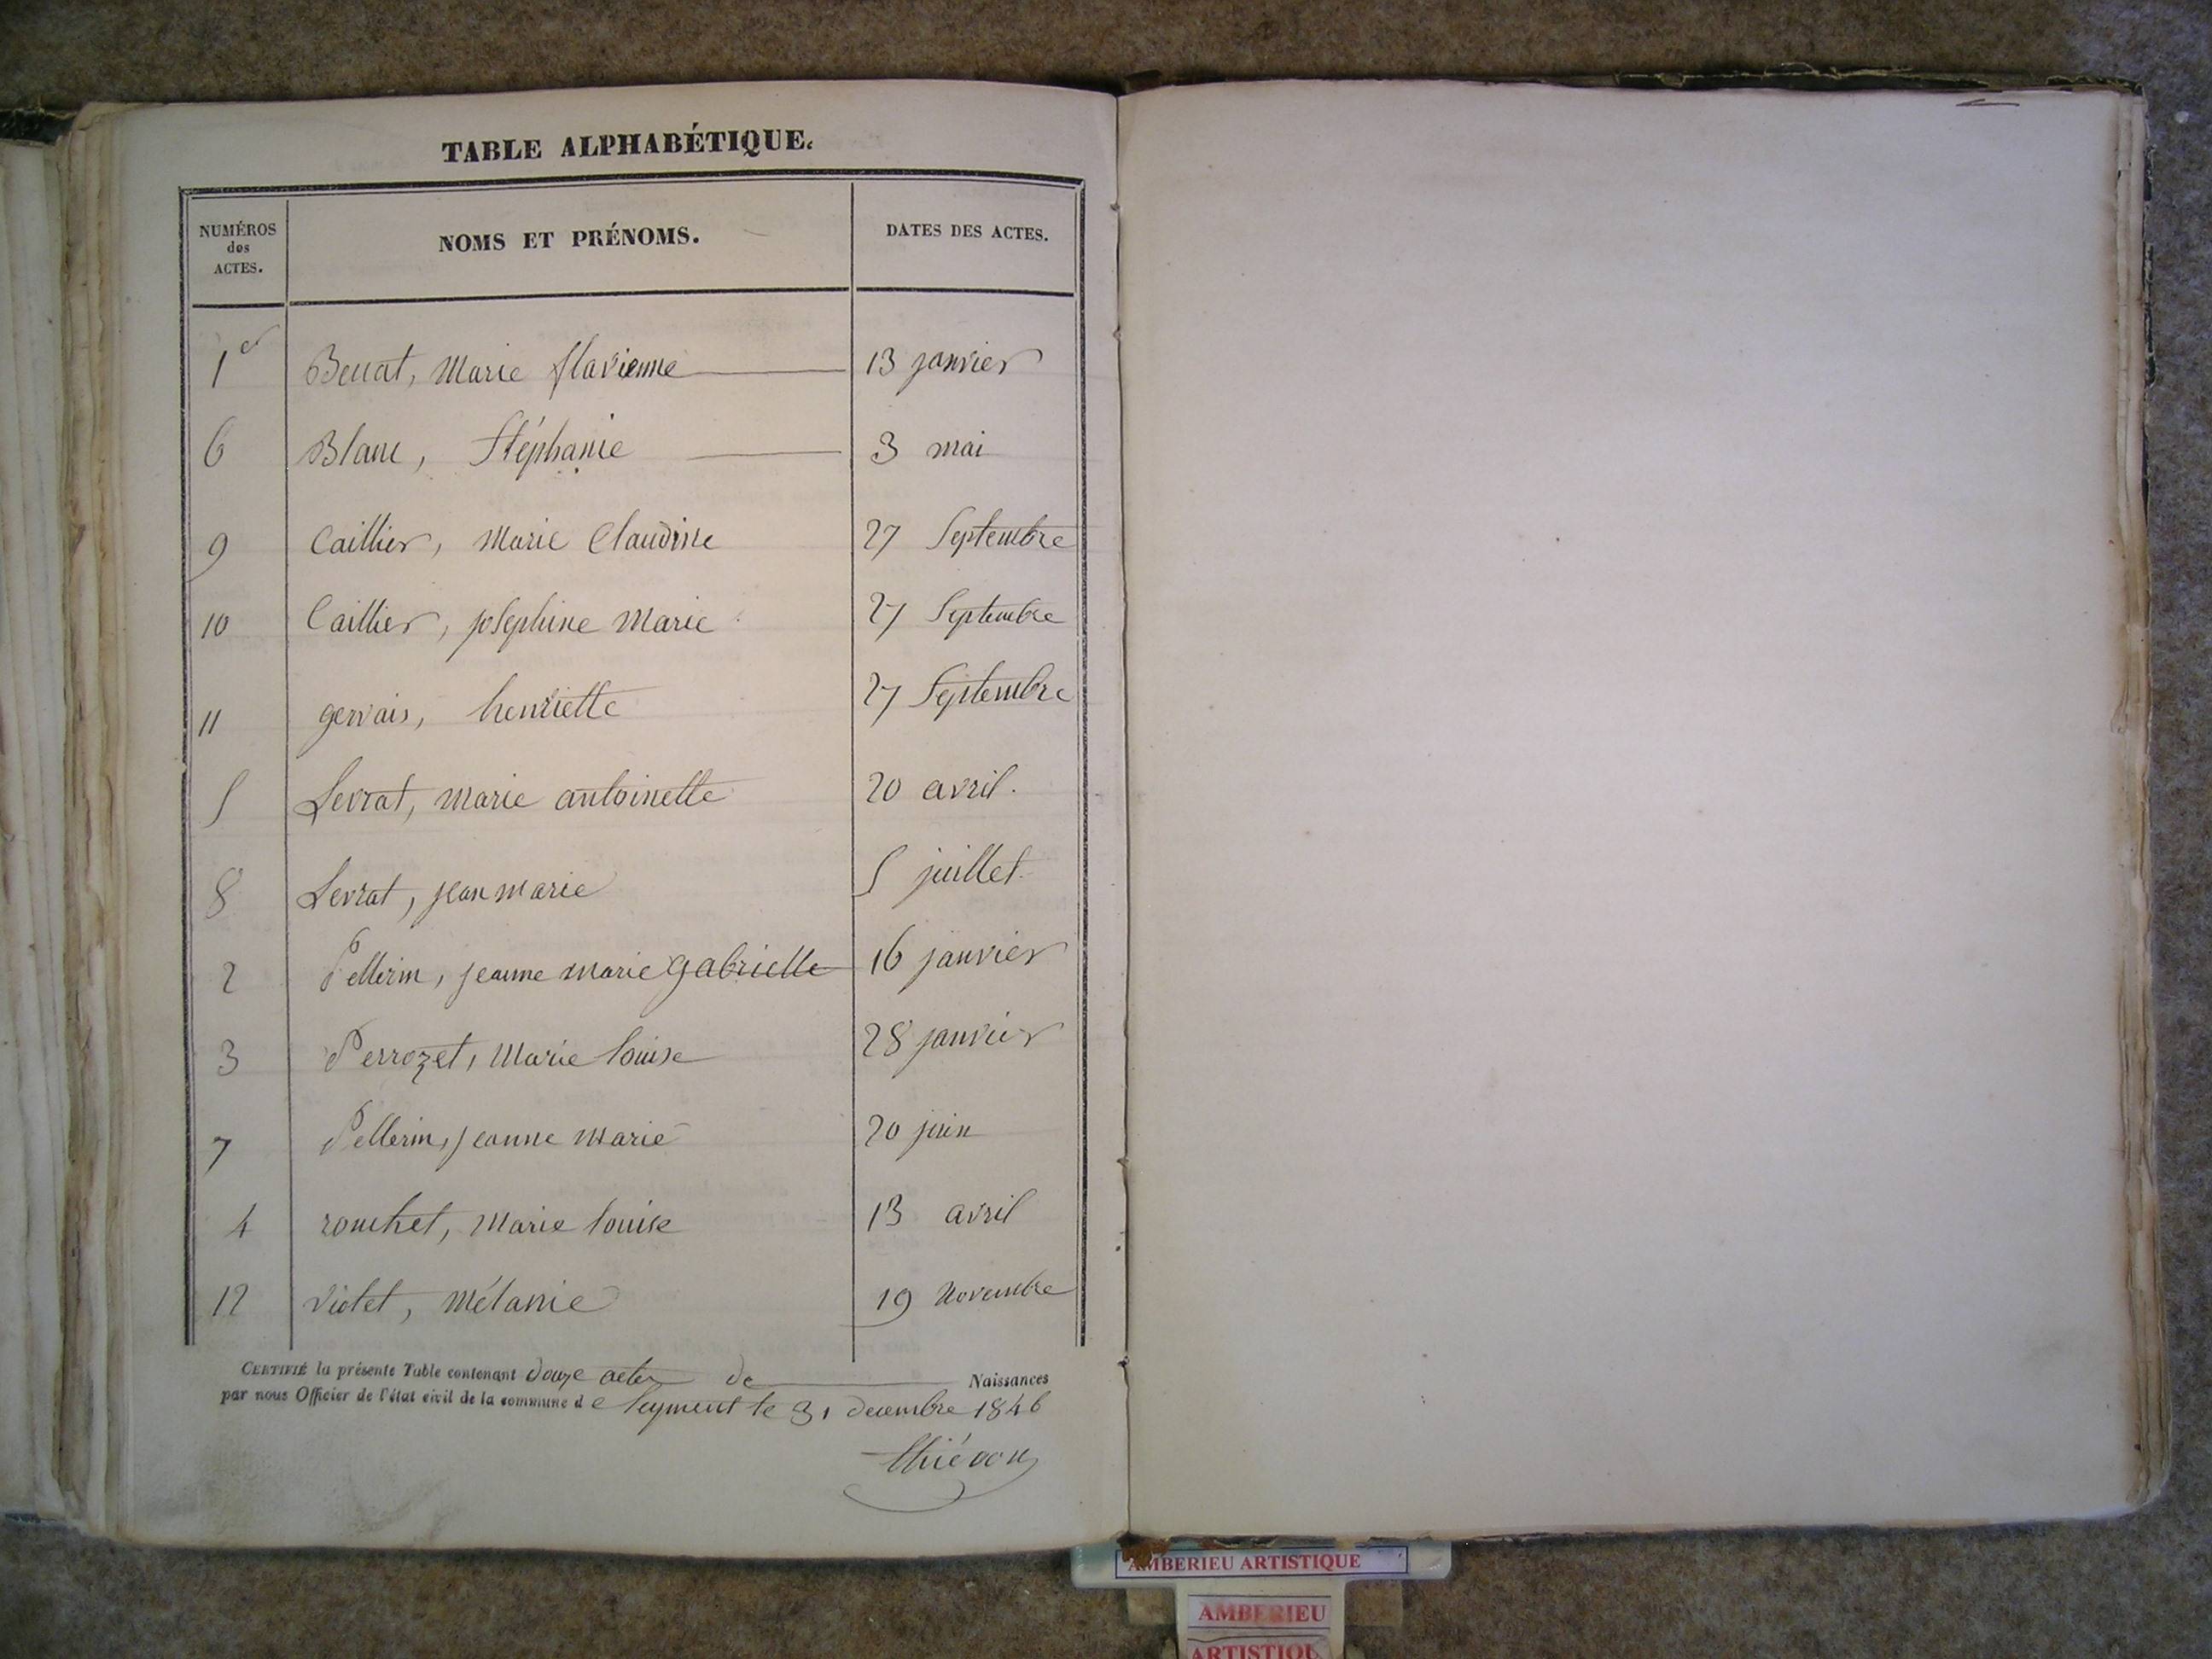 TABLE ALPHABÉTIQUE.
NUMÉROS des ACTES. NOMS ET PRÉNOMS. DATES DES ACTES.
1er Beuat, Marie flavienne 13 janvier
6 Blanc, Stéphanie 3 mai
9 Caillier, Marie Claudine 27 Septembre
10 Caillier, josephine Marie 27 Septembre
11 gervais, henriette 27 Septembre
5 Levrat, Marie antoinette 20 avril.
8 Levrat, jean marie 5 juillet
2 Pellerin, jeanne marie gabrielle 16 janvier
3 Perrozet, Marie louise 28 janvier
7 Pellerin, jeanne marie 20 juin
4 rouchet, Marie louise 13 avril
12 Violet, Mélanie 19 Novembre
CERTIFIÉ la présente Table contenant douze actes de Naissances
par nous Officier de l'état civil de la commune de leyment le 31 decembre 1846
Thiévon
AMBERIEU ARTISTIQUE
AMBERIEU
ARTISTIQU